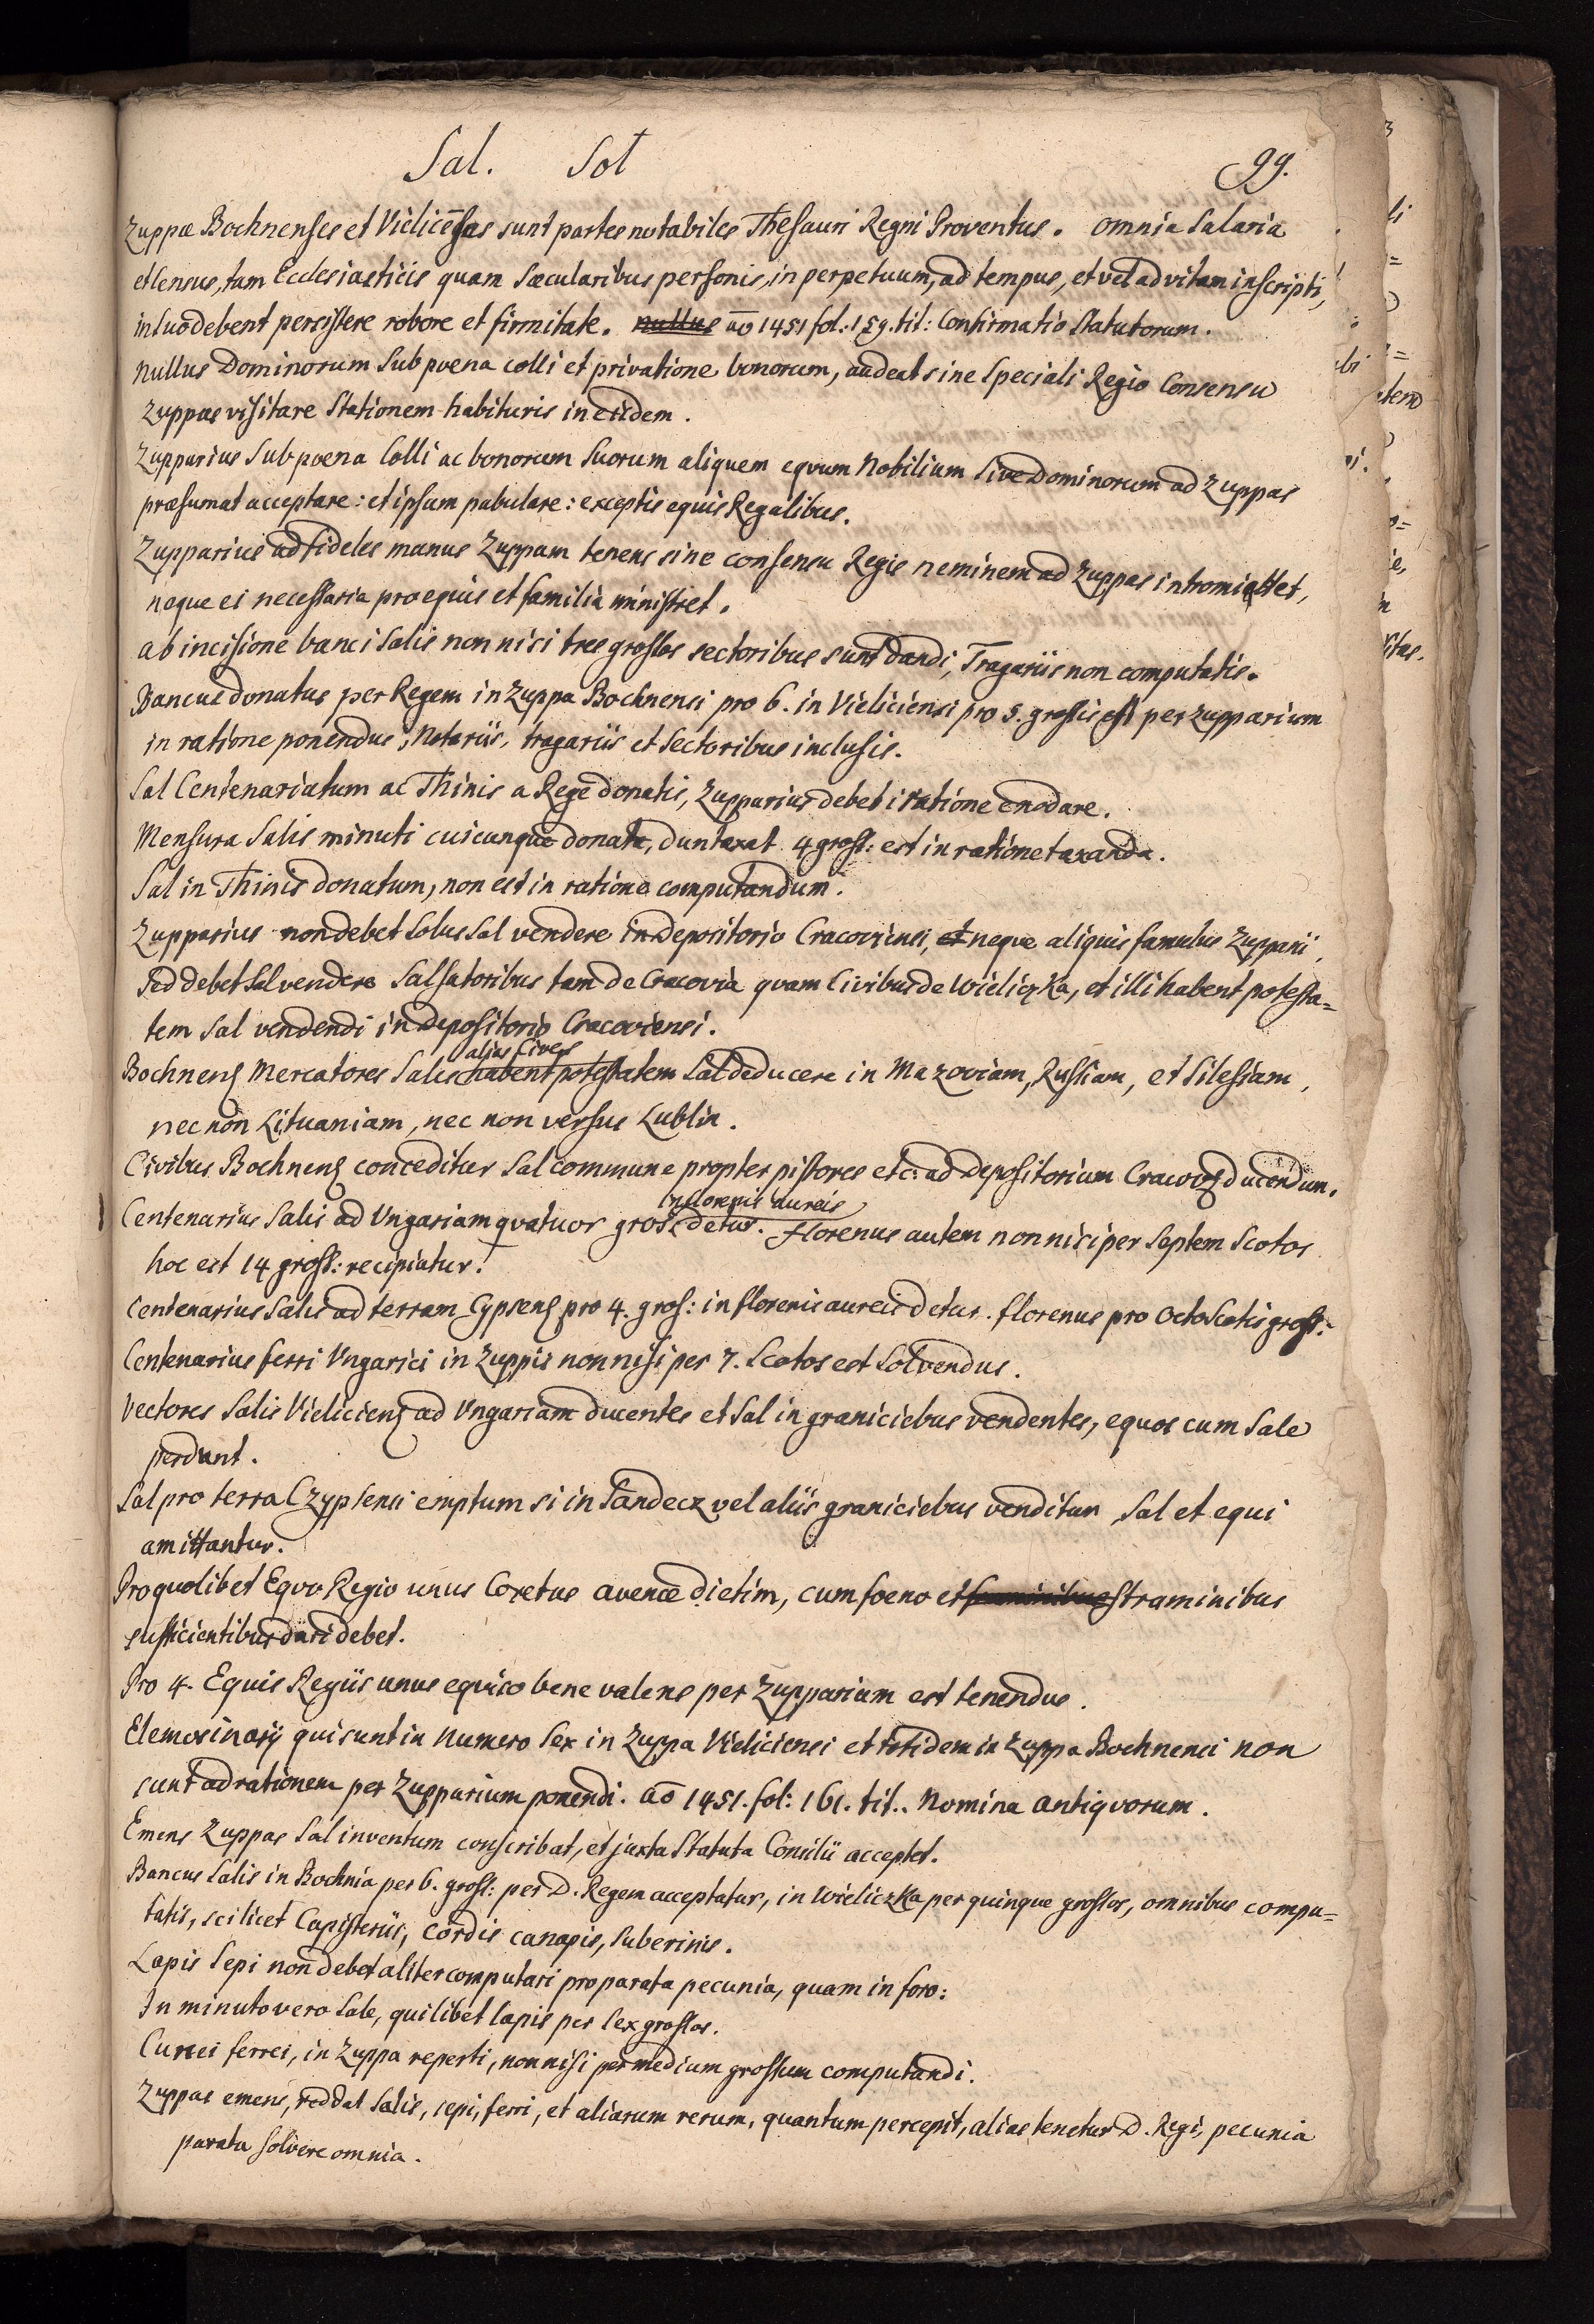 Sal. Sol 99.
Zuppæ Bochnenses et Vielicēses sunt partes notabiles Thesauri Regni Proventus. omnia Salaria
et Census, tam Ecclesiasticis quam Sæcularibus personis, in perpetuum, ad tempus, et vel ad vitam inscripti,
in suo debent persistere robore et firmitate. nullus aō 1451 fol: 159. tit: Confirmatio Statutorum.
Nullus Dominorum Sub poena colli et privatione bonorum, audeat sine Speciali Regio Consensu
Zuppas visitare Stationem habituris in eisdem.
Zupparius Sub poena Colli ac bonorum Suorum aliquem eqvum Nobilium Sive Dominorum ad Zuppas
præsumat acceptare: et ipsum pabulare: exceptis equis Regalibus.
Zupparius ad fideles manus Zuppam tenens sine consensu Regis neminem ad Zuppas intromittet,
neque ei necessaria pro equis et familia ministret.
ab incisione banci Salis non nisi tres grossos sectoribus sunt dandi, Tragariis non computatis.
Bancus donatus per Regem in Zuppa Bochnensi pro 6. in Vieliciensi pro 5. grossis est per zupparium
in ratione ponendus, Notariis, tragariis et Sectoribus inclusis.
Sal Centenariatum ac Thinis a Rege donatis, Zupparius debet i ratione enodare.
Mensura Salis minuti cuicunque donata, duntaxat 4 gross: est in ratione taxanda.
Sal in Thinis donatum, non est in ratione computandum.
Zupparius non debet Solus Sal vendere in Depositorio Cracoviensi, et neque aliquis famulus Zupparii,
Sed debet Sal vendere Salsatoribus tam de Cracovia quam Civibus de Wieliczka, et illi habent potesta=
tem Sal vendendi in Depositorio Cracoviensi.
alias Cives
Bochnens Mercatores Salis habent potestatem Sal deducere in Mazoviam, Russiam, et Silesiam,
nec non Lituaniam, nec non versus Lublin.
Civibus Bochnens conceditur Sal commune propter pistores etc: ad Depositorium Cracoviens ducendum.
in florenis aureis
Centenarius Salis ad Ungariam qvatuor gros: detur. florenus autem non nisi per Septem Scotos
hoc est 14 gross: recipiatur.
Centenarius Salis ad terram Cypsens pro 4. gros: in florenis aureis detur. florenus pro Octo Scotis gross:
Centenarius ferri Ungarici in Zuppis nonnisi per 7. Scotos est Solvendus.
Vectores Salis Vieliciens ad Ungariam ducentes et Sal in graniciebus vendentes, equos cum Sale
perdunt.
Sal pro terra Czypsensi emptum si in Sandecz vel aliis graniciebus venditur Sal et equi
amittantur.
Pro quolibet Eqvo Regio unus Coretus avenæ dietim, cum foeno et straminibus
sufficientibus dari debet.
Pro 4. Equis Regiis unus equiso bene valens per Zupparium est tenendus.
Elemosinarij qui sunt in Numero Sex in Zuppa Vieliciensi et totidem in Zuppa Bochnensi non
sunt ad rationem per Zupparium ponendi. aō 1451. fol: 161. tit.. Nomina antiqvorum.
Emens Zuppas Sal inventum conscribat, et juxta Statuta Consilii acceptet.
Bancus Salis in Bochnia per 6. gross: per D. Regem acceptatur, in Wieliczka per quinque grossos, omnibus compu=
tatis, scilicet Capisteriis, Cordis canapis, Suberinis.
Lapis Sepi non debet aliter computari pro parata pecunia, quam in foro:
In minuto vero Sale, quilibet lapis per Sex grossos.
Cunei ferrei, in Zuppa reperti, nonnisi per medium grossum computandi.
Zuppas emens, reddat Salis, sepi, ferri, et aliarum rerum, quantum percepit, alias tenetur D. Regi, pecunia
parata solvere omnia.